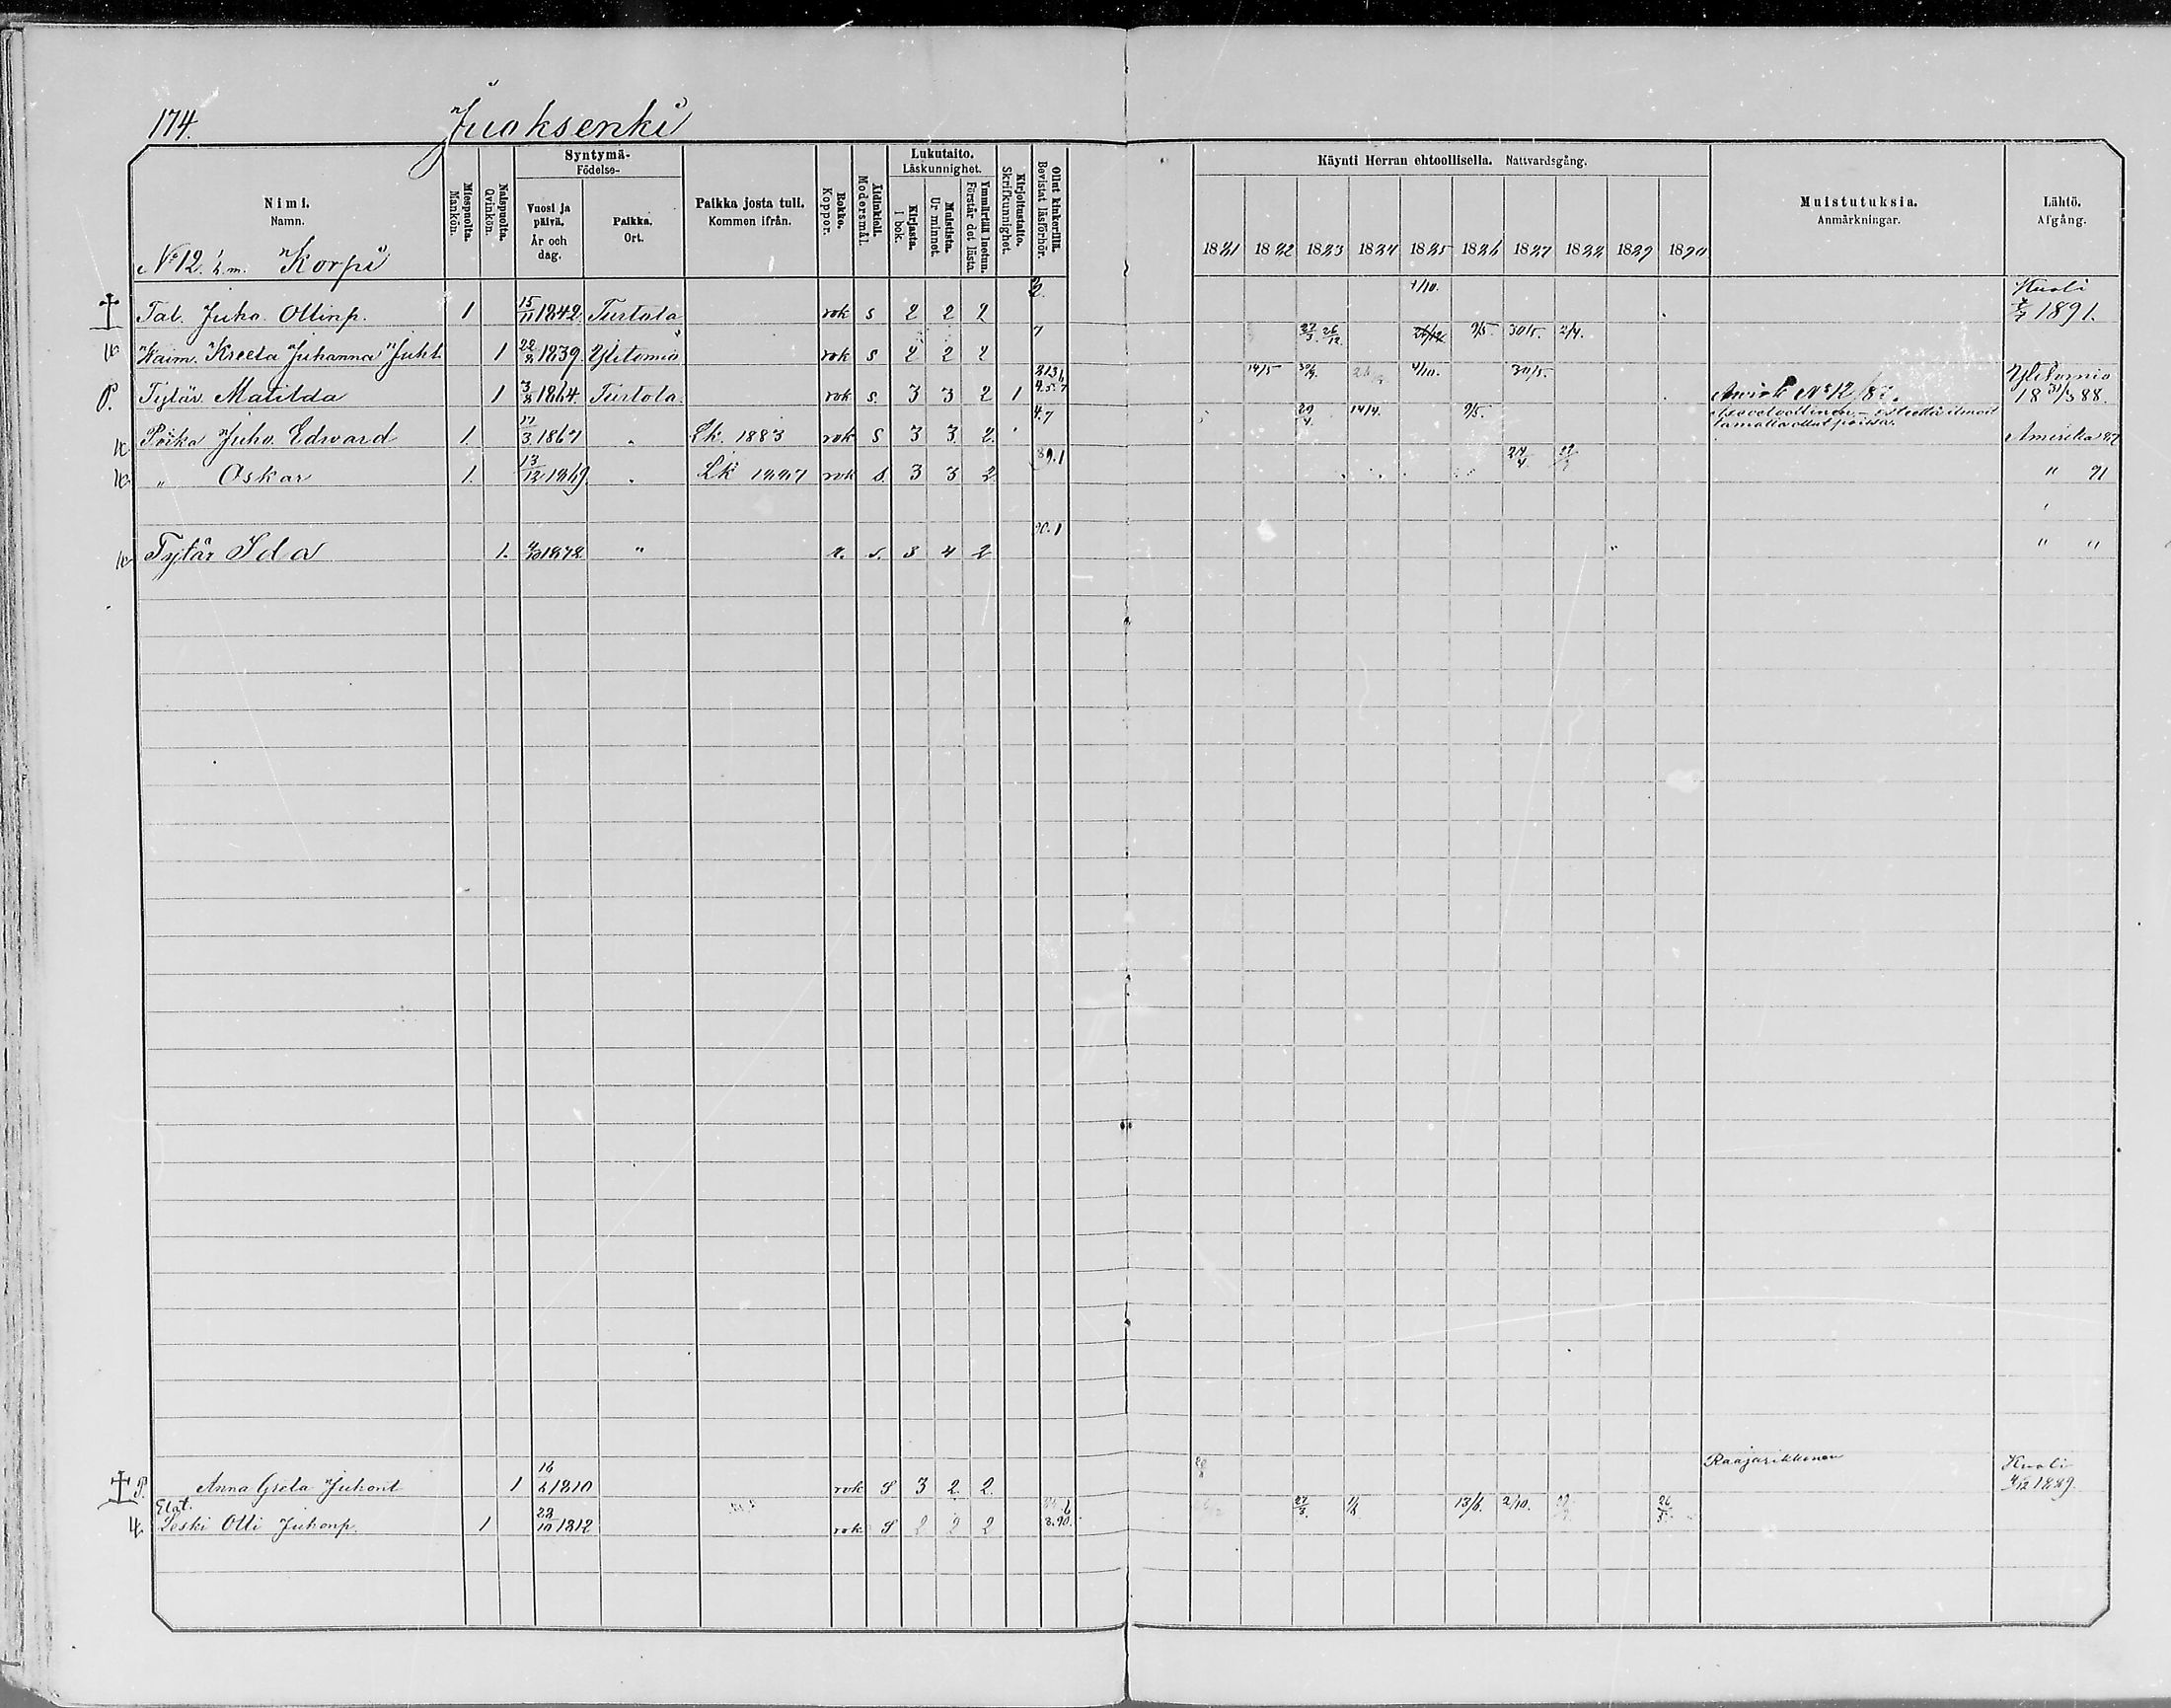 174. Juoksenki
Nimi. Namn.
Miespuolta. Mankön.
Naispuolta. Qvinkön.
Syntymä- Födelse-
Vuosi ja päivä. År och dag.
Paikka. Ort.
Paikka josta tuli. Kommen ifrån.
Rokko. Koppor.
Äidinkieli. Modersmål.
Lukutaito. Läskunnighet.
Kirjasta. I bok.
Muistista. Ur minnet.
Ymmärtää luetun. Förstår det lästa.
Kirjoitustaito. Skrifkunnighet.
Ollut kinkerillä. Bevistat läsförhör.
Käynti Herran ehtoollisella. Nattvardsgång.
1881 1882 1883 1884 1885 1886 1887 1888 1889 1890
Muistutuksia. Anmärkningar.
Lähtö. Afgång.
No 12. h.m. Korpi
Tal. Juho Ollinp. 1 15/11 1842. Turtola rok s 2 2 2 1/10. Kuoli 1891.
Waim. Kreeta Juhanna Juht. 1 1839. Ylitornio rok s 2 2 2 7 26/12 9/5 30/5 2/4.
P. Tytär Matilda 1 3/8 1864. Turtola rok s. 3 3 2 1 14/5 4/10. 30/5. Ylitornio 18 31/3 88.
Poika Juho Edward 1. 17/3 1867 " Lk. 1883 rok s 3 3 2. 4.7 29/4 14/4. 9/5. Amerika
" Oskar 1. 13/12 1869. " Lk 1887 rok s. 3 3 2 89.1 " 91
Tytär Ida 1. 1878 " r. s. 3 4 2 90.1 " "
P. Anna Greta Juhont 1 1810 rok S 3 2 2. Raajarikkonen Kuoli 4/12 1889.
Elät.
Leski Olli Juhonp. 1 28/10 1812 rok S 2 2 2 8.90. 13/6. 2/10.